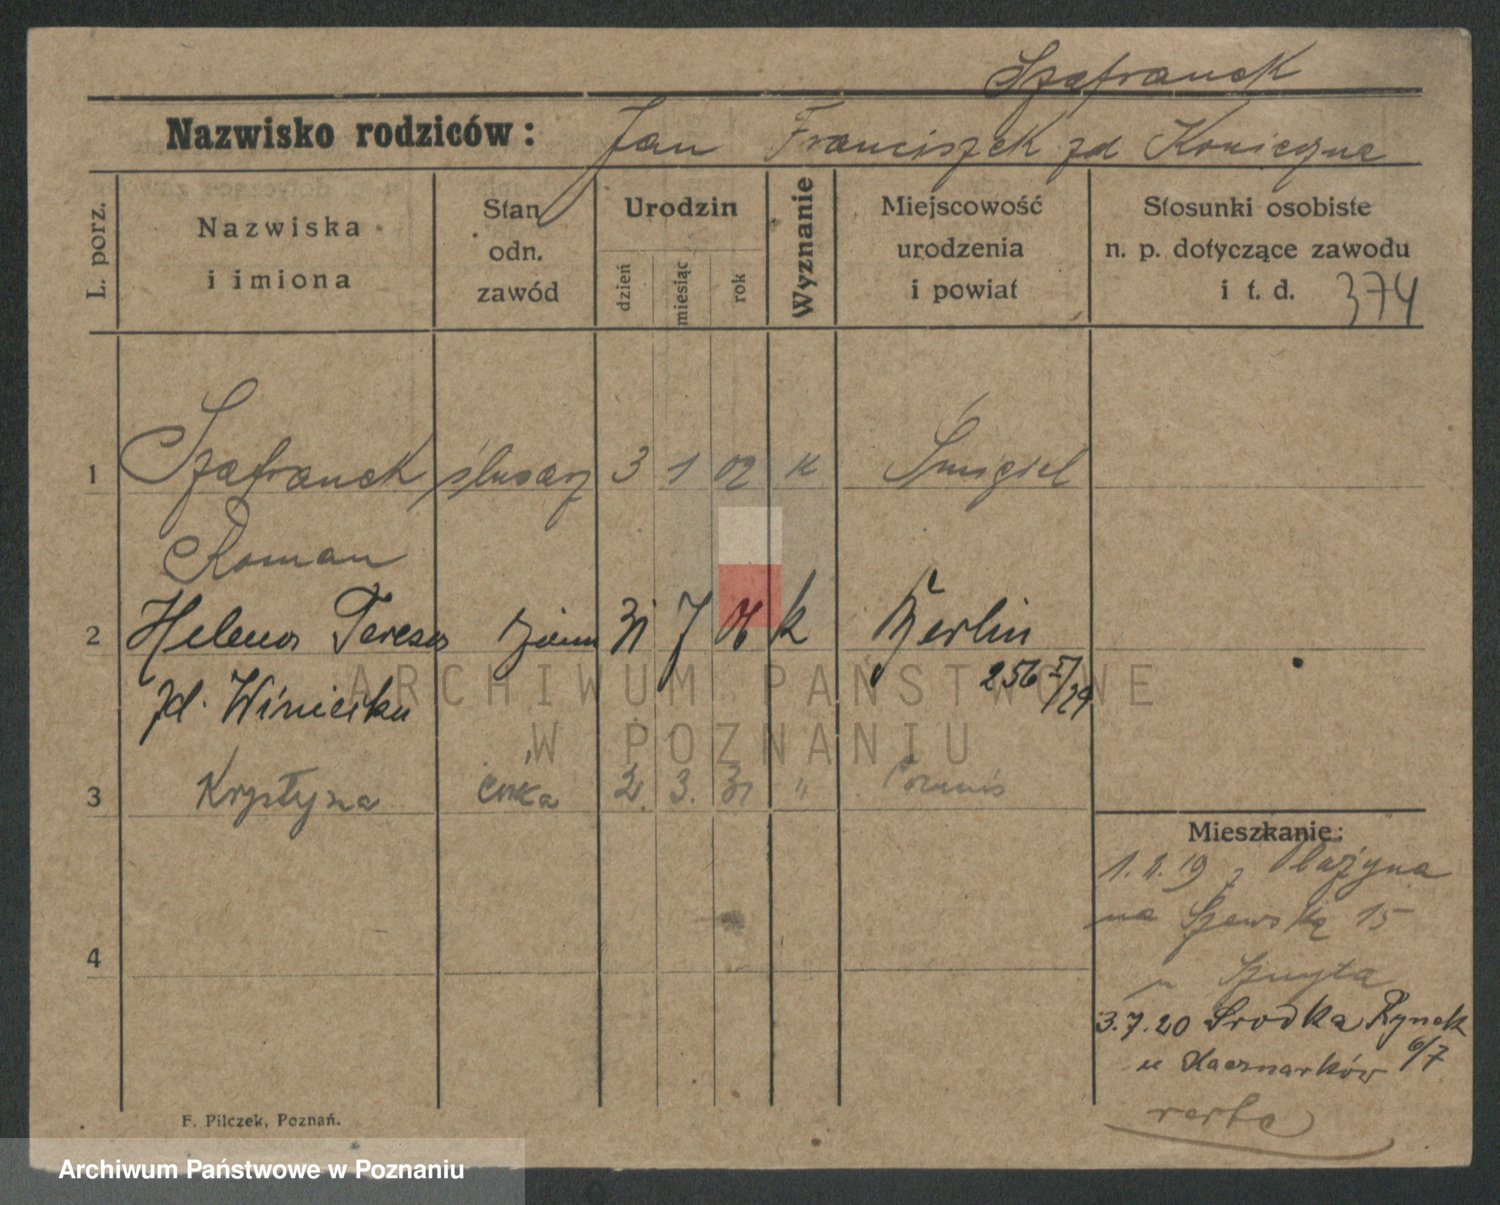 Szafranek
Nazwisko rodziców: Jan Franciszek zd Konieczna
L. porz.
Nazwiska i imiona
Stan odn. zawód
Urodzin
dzień
miesiąc
rok
Wyznanie
Miejscowość urodzenia i powiat
Stosunki osobiste n. p. dotyczące zawodu i t. d. 374
1 Szafranek ślusarz 3 1 02 k Śmigiel
Roman
2 Helena Teresa 31 7 06 k Berlin
zd. 256 I/29
3 Krystyna córka 2. 3. 31 " Poznań
Mieszkanie:
1. 1. 19 z
na Szewską 15
u Szmyta
3.7.20 Srodka Rynek
u Kaczmarków 6/7
4
F. Pilczek, Poznań.
ARCHIWUM PAŃSTWOWE
W POZNANIU
Archiwum Państwowe w Poznaniu